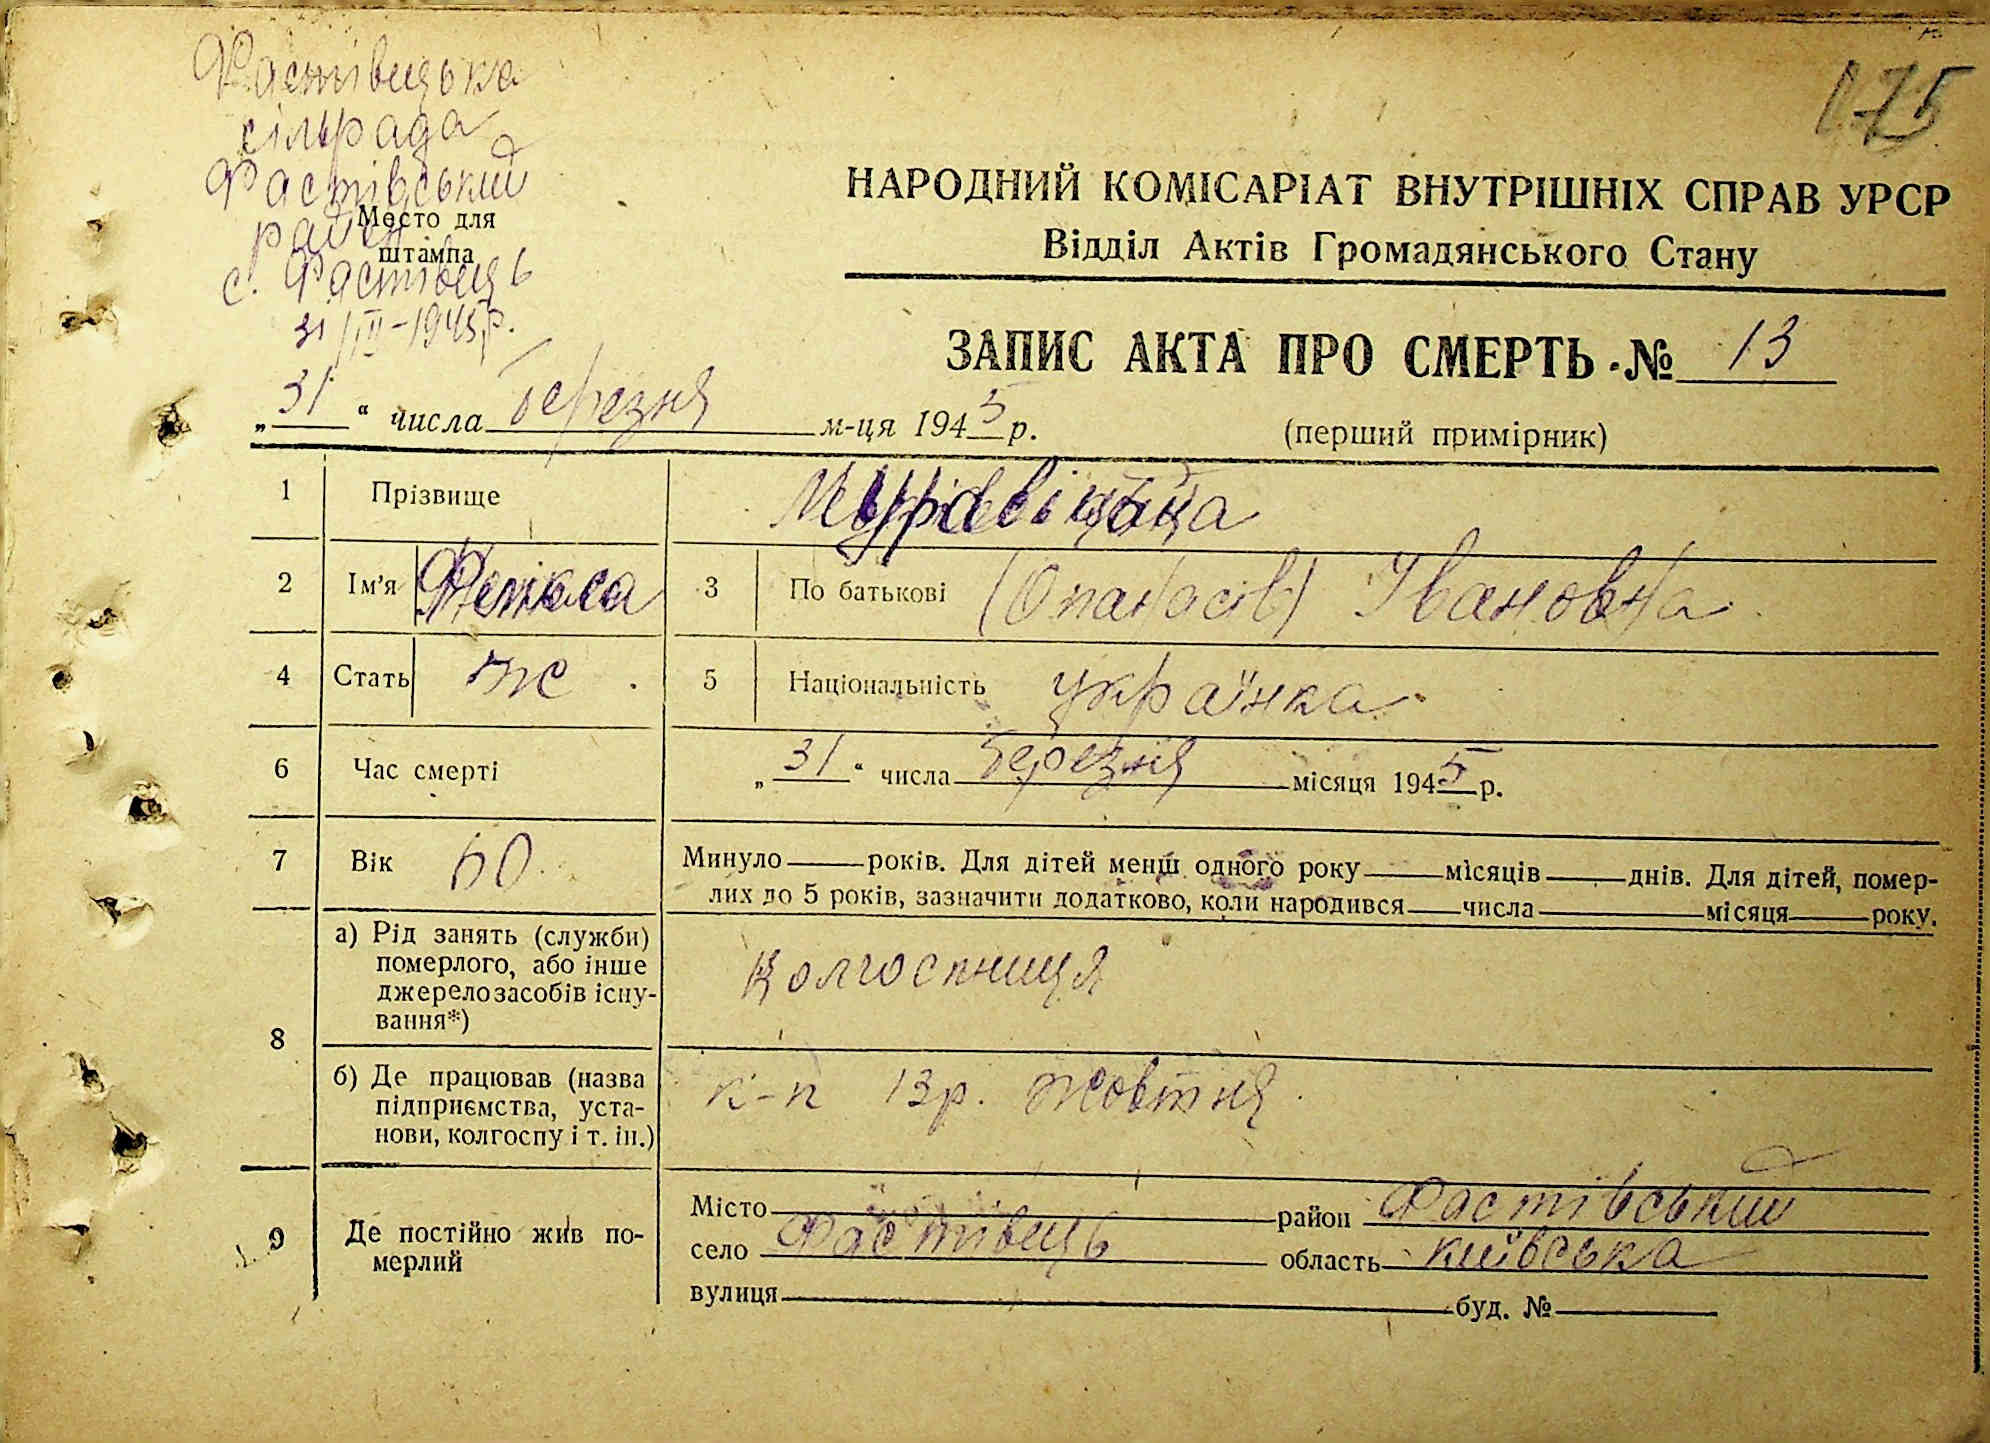 Фастівецька
175
сільрада
Фастівський
район
Место для
штампа
с. Фастівець
31/III-1945р.
НАРОДНИЙ КОМІСАРІАТ ВНУТРІШНІХ СПРАВ УРСР
Відділ Актів Громадянського Стану
ЗАПИС АКТА ПРО СМЕРТЬ № 13
„31“ числа березня м-ця 1945 р.
(перший примірник)
1 Прізвище
2 Ім'я 3 По батькові (Опанасів) Івановна
4 Стать ж 5 Національність українка
6 Час смерті „31“ числа березня місяця 1945 р.
7 Вік 60 Минуло ___ років. Для дітей менш одного року ___ місяців ___ днів. Для дітей, помер-
лих до 5 років, зазначити додатково, коли народився ___ числа ___ місяця ___ року.
8
а) Рід занять (служби)
померлого, або інше
джерело засобів існу-
вання*)
Колгоспниця
б) Де працював (назва
підприємства, уста-
нови, колгоспу і т. ін.)
к-п 13р. Жовтня
9 Де постійно жив по-
мерлий
Місто ___ район Фастівський
село Фастівець область київська
вулиця ___ буд. № ___